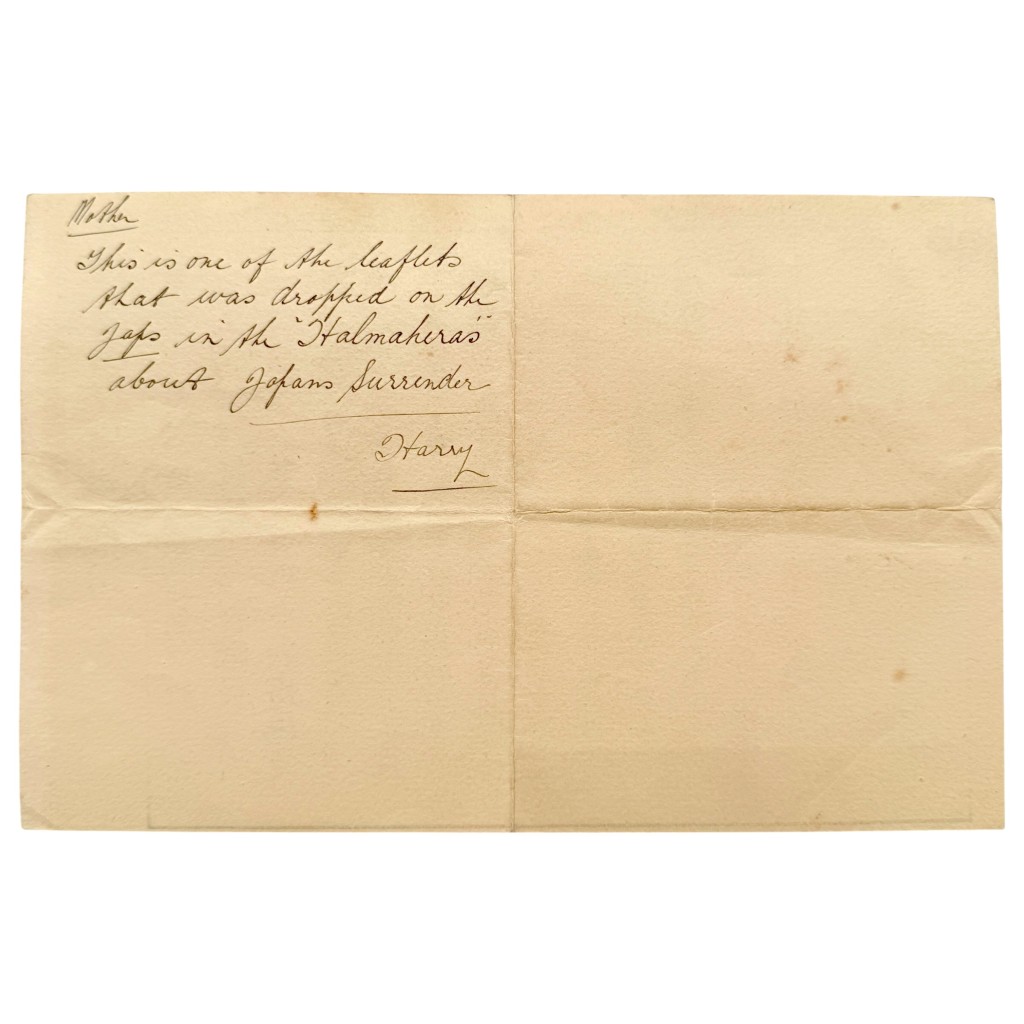 Mother
This is one of the leaflets
that was dropped on the
Japs in the "Halmaheras"
about Japans Surrender
Harry